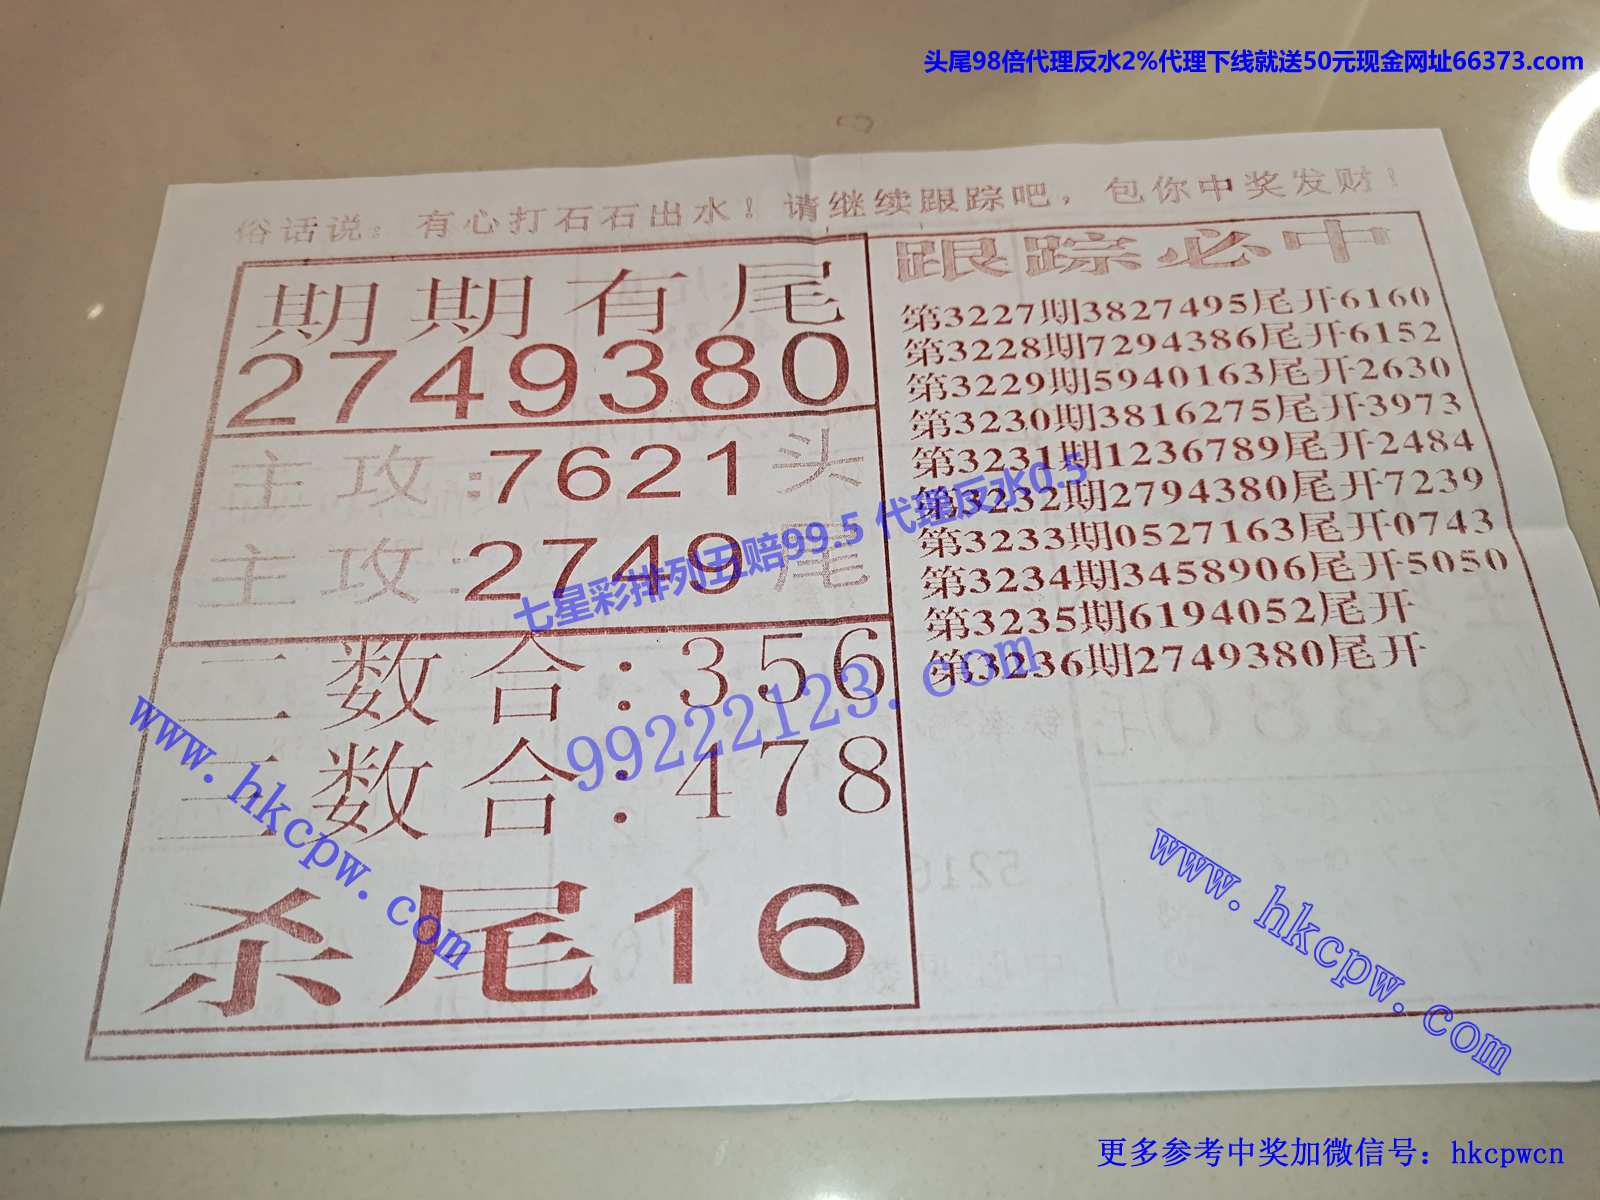 头尾98倍代理反水2%代理下线就送50元现金网址66373.com
俗话说：有心打石石出水！请继续跟踪吧，包你中奖发财！
期期有尾
2749380
主攻:7621头
主攻:2749尾
二数合:356
三数合:478
杀尾16
跟踪必中
第3227期3827495尾开6160
第3228期7294386尾开6152
第3229期5940163尾开2630
第3230期3816275尾开3973
第3231期1236789尾开2484
第3232期2794380尾开7239
第3233期0527163尾开0743
第3234期3458906尾开5050
第3235期6194052尾开
第3236期2749380尾开
七星彩排列五赔99.5 代理反水0.5
99222123.com
www.hkcpw.com
www.hkcpw.com
更多参考中奖加微信号：hkcpwcn